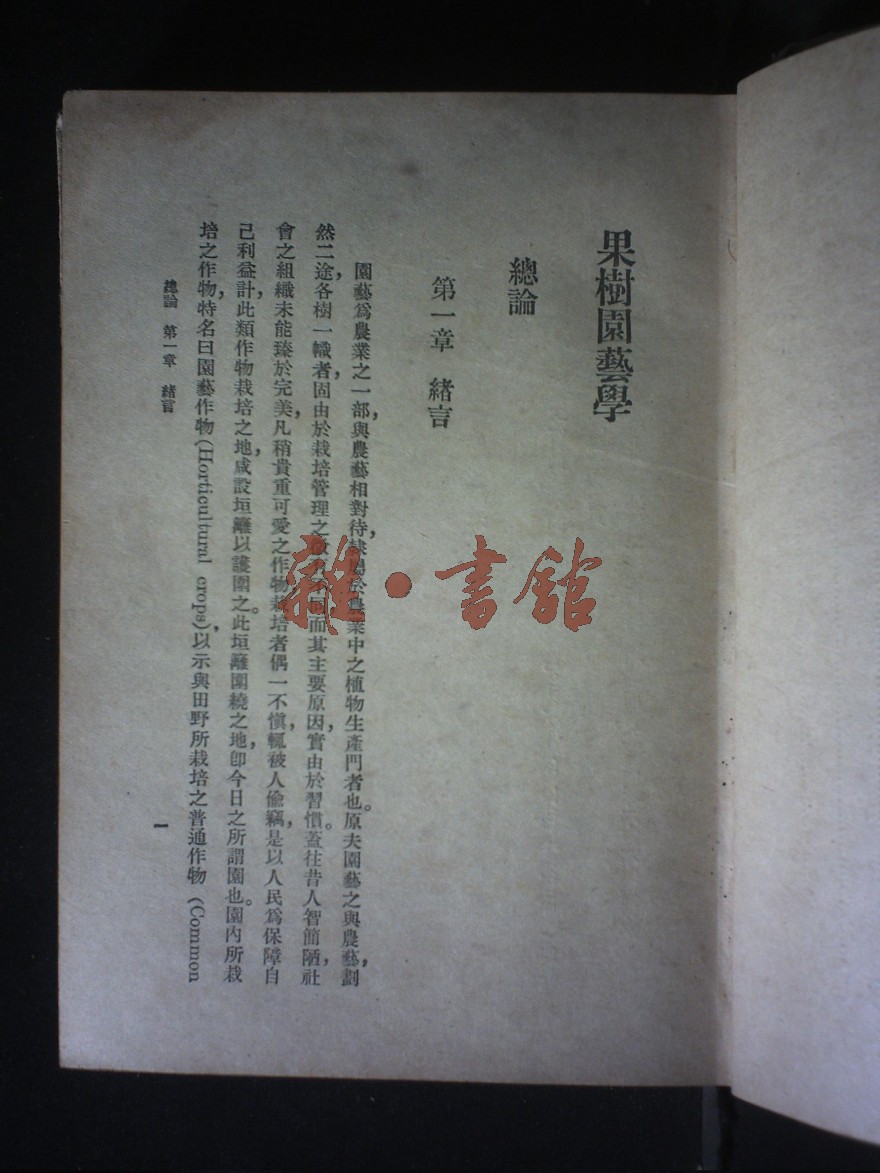 果樹園藝學
總論
第一章 緒言
園藝爲農業之一部，與農藝相對待，隸屬於農業中之植物生產門者也。原夫園藝之與農藝，劃
然二途，各樹一幟者，固由於栽培管理之 同，而其主要原因，實由於習慣。蓋往昔人智簡陋，社
會之組織未能臻於完美，凡稍貴重可愛之作物，栽培者偶一不愼，輒被人偷竊，是以人民爲保障自
己利益計，此類作物栽培之地，咸設垣籬以護圍之。此垣籬圍繞之地，卽今日之所謂園也。園內所栽
培之作物，特名曰園藝作物(Horticultural crops)，以示與田野所栽培之普通作物 (Common
總論 第一章 緒言
一
雜·書館